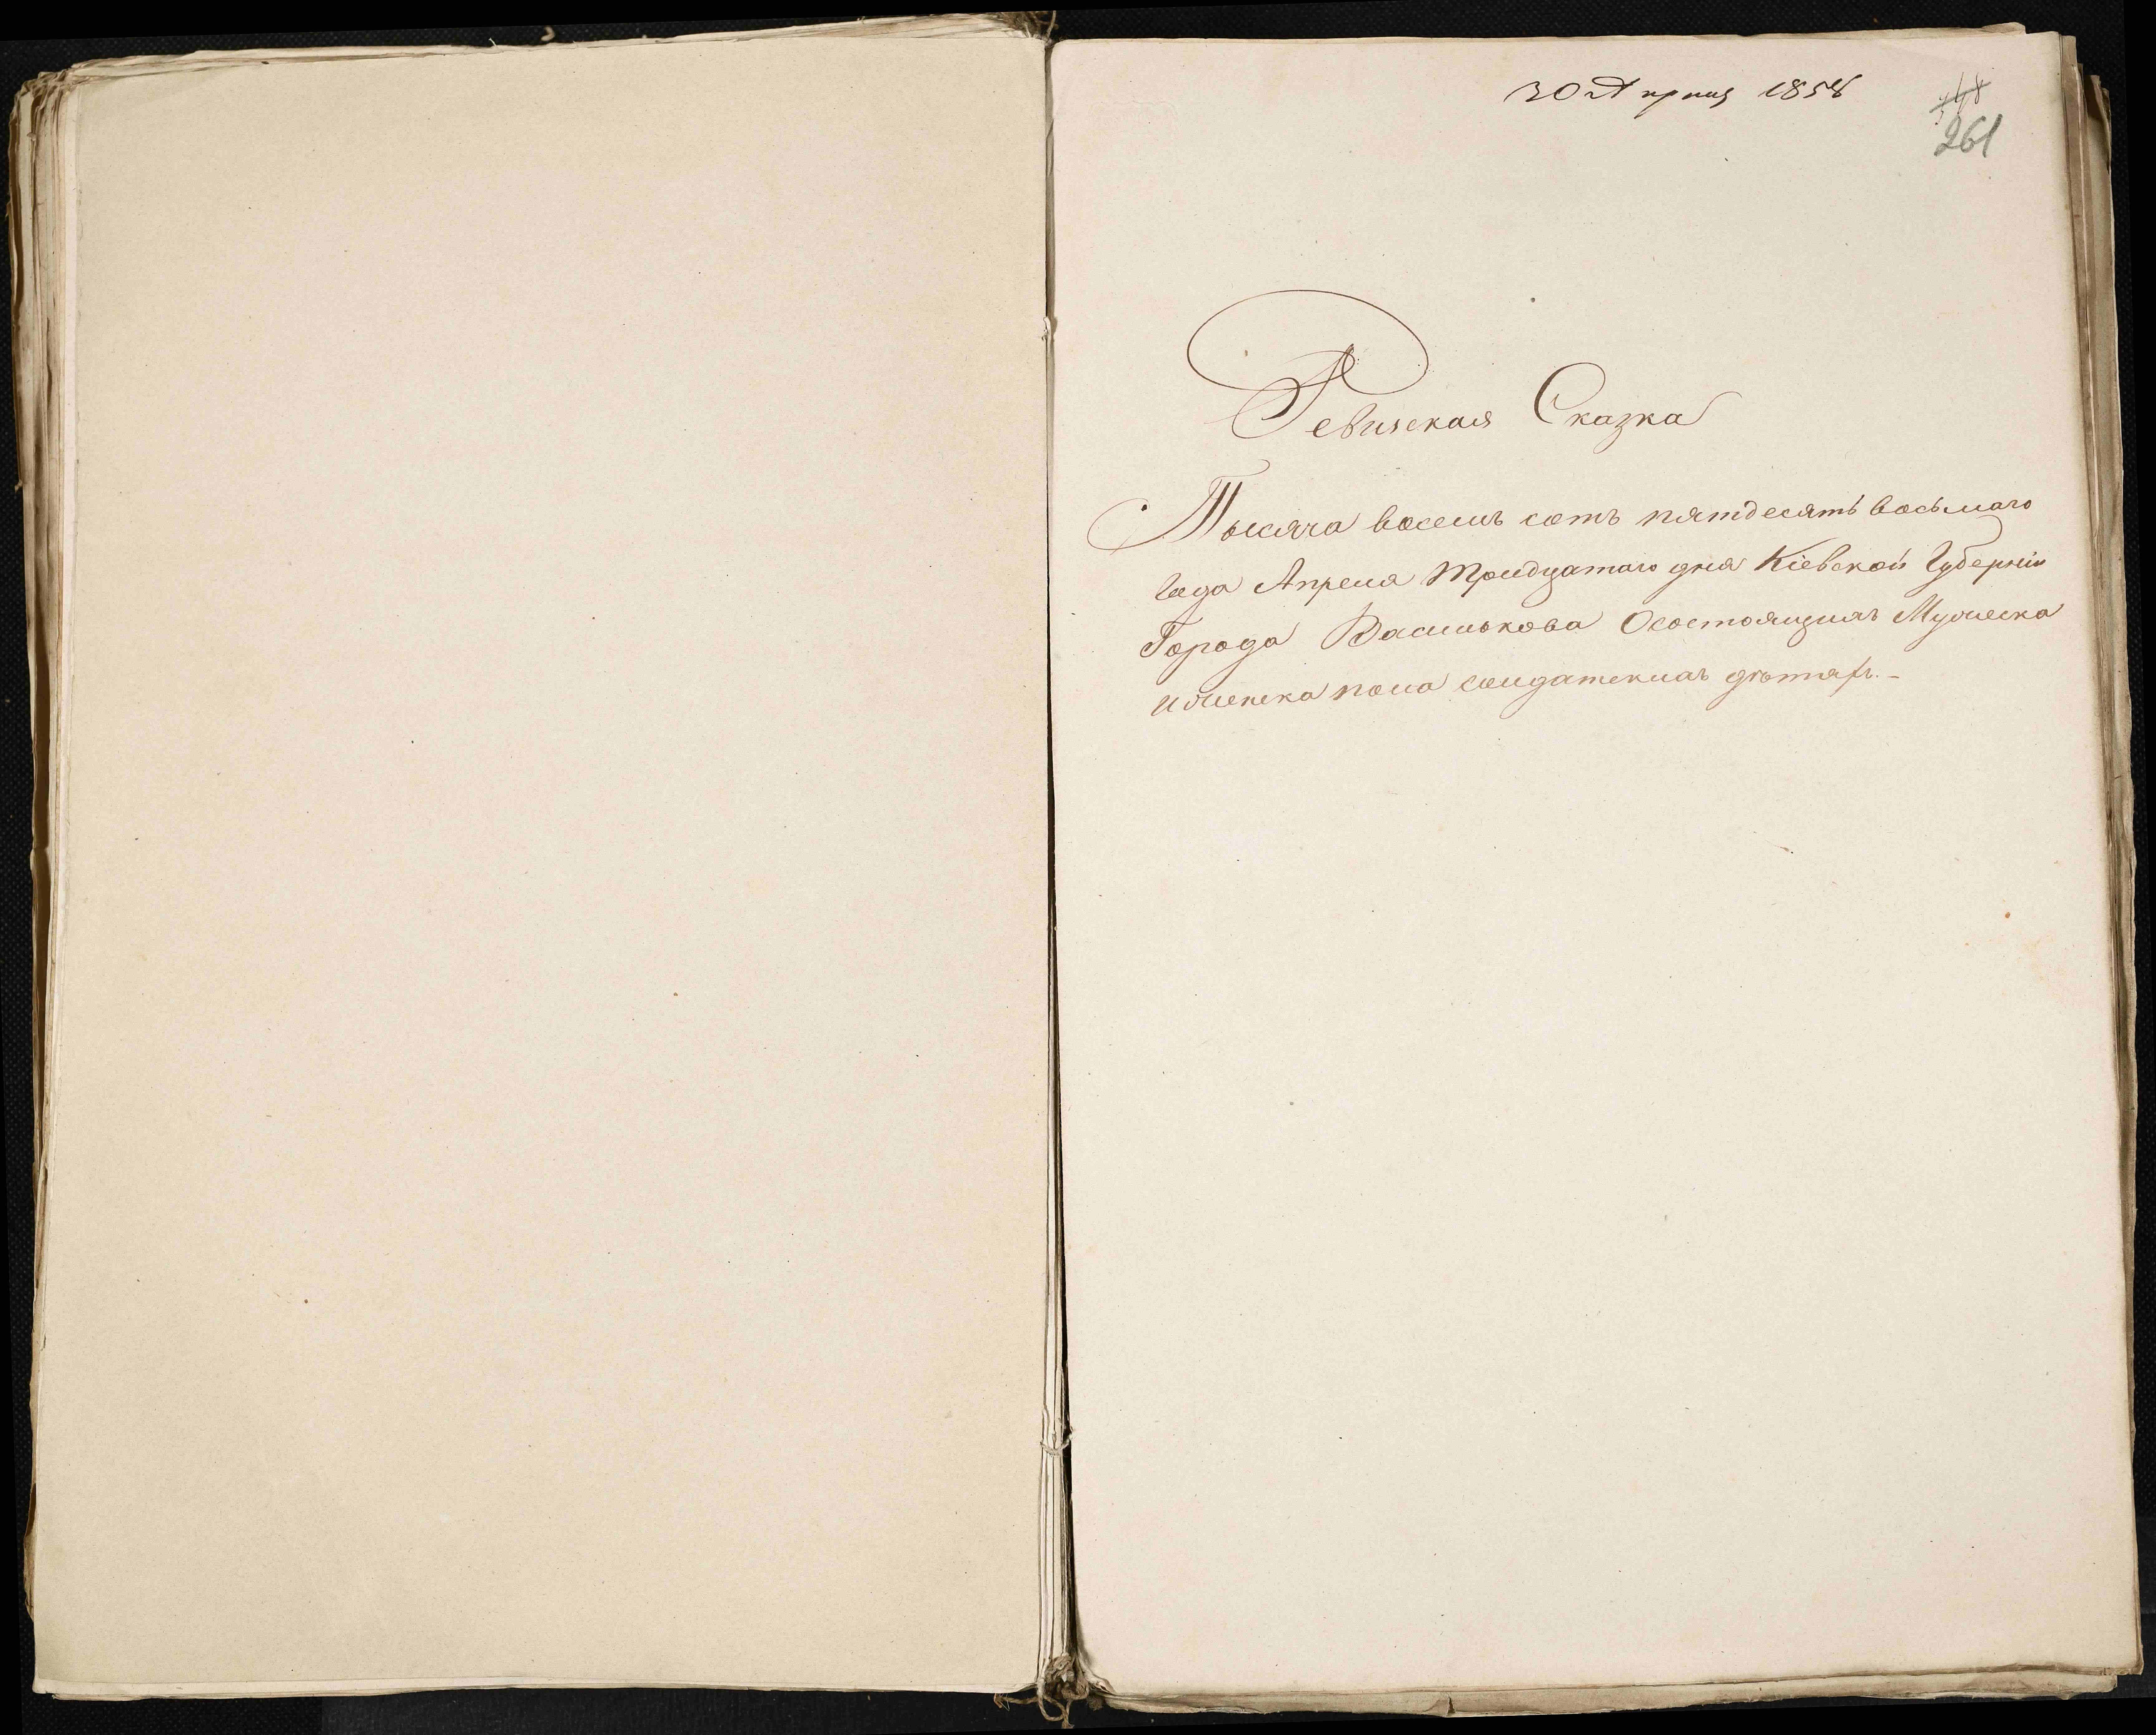 30 Апреля 1858
261
Ревизская Сказка
Тысяча восемь сотъ пятдесятъ восьмаго
Года Апреля тридцатаго дня Кіевской Губерніи
Города Василькова Осостоящихъ Мужеска
и женска пола солдатскихъ дѣтяхъ.-